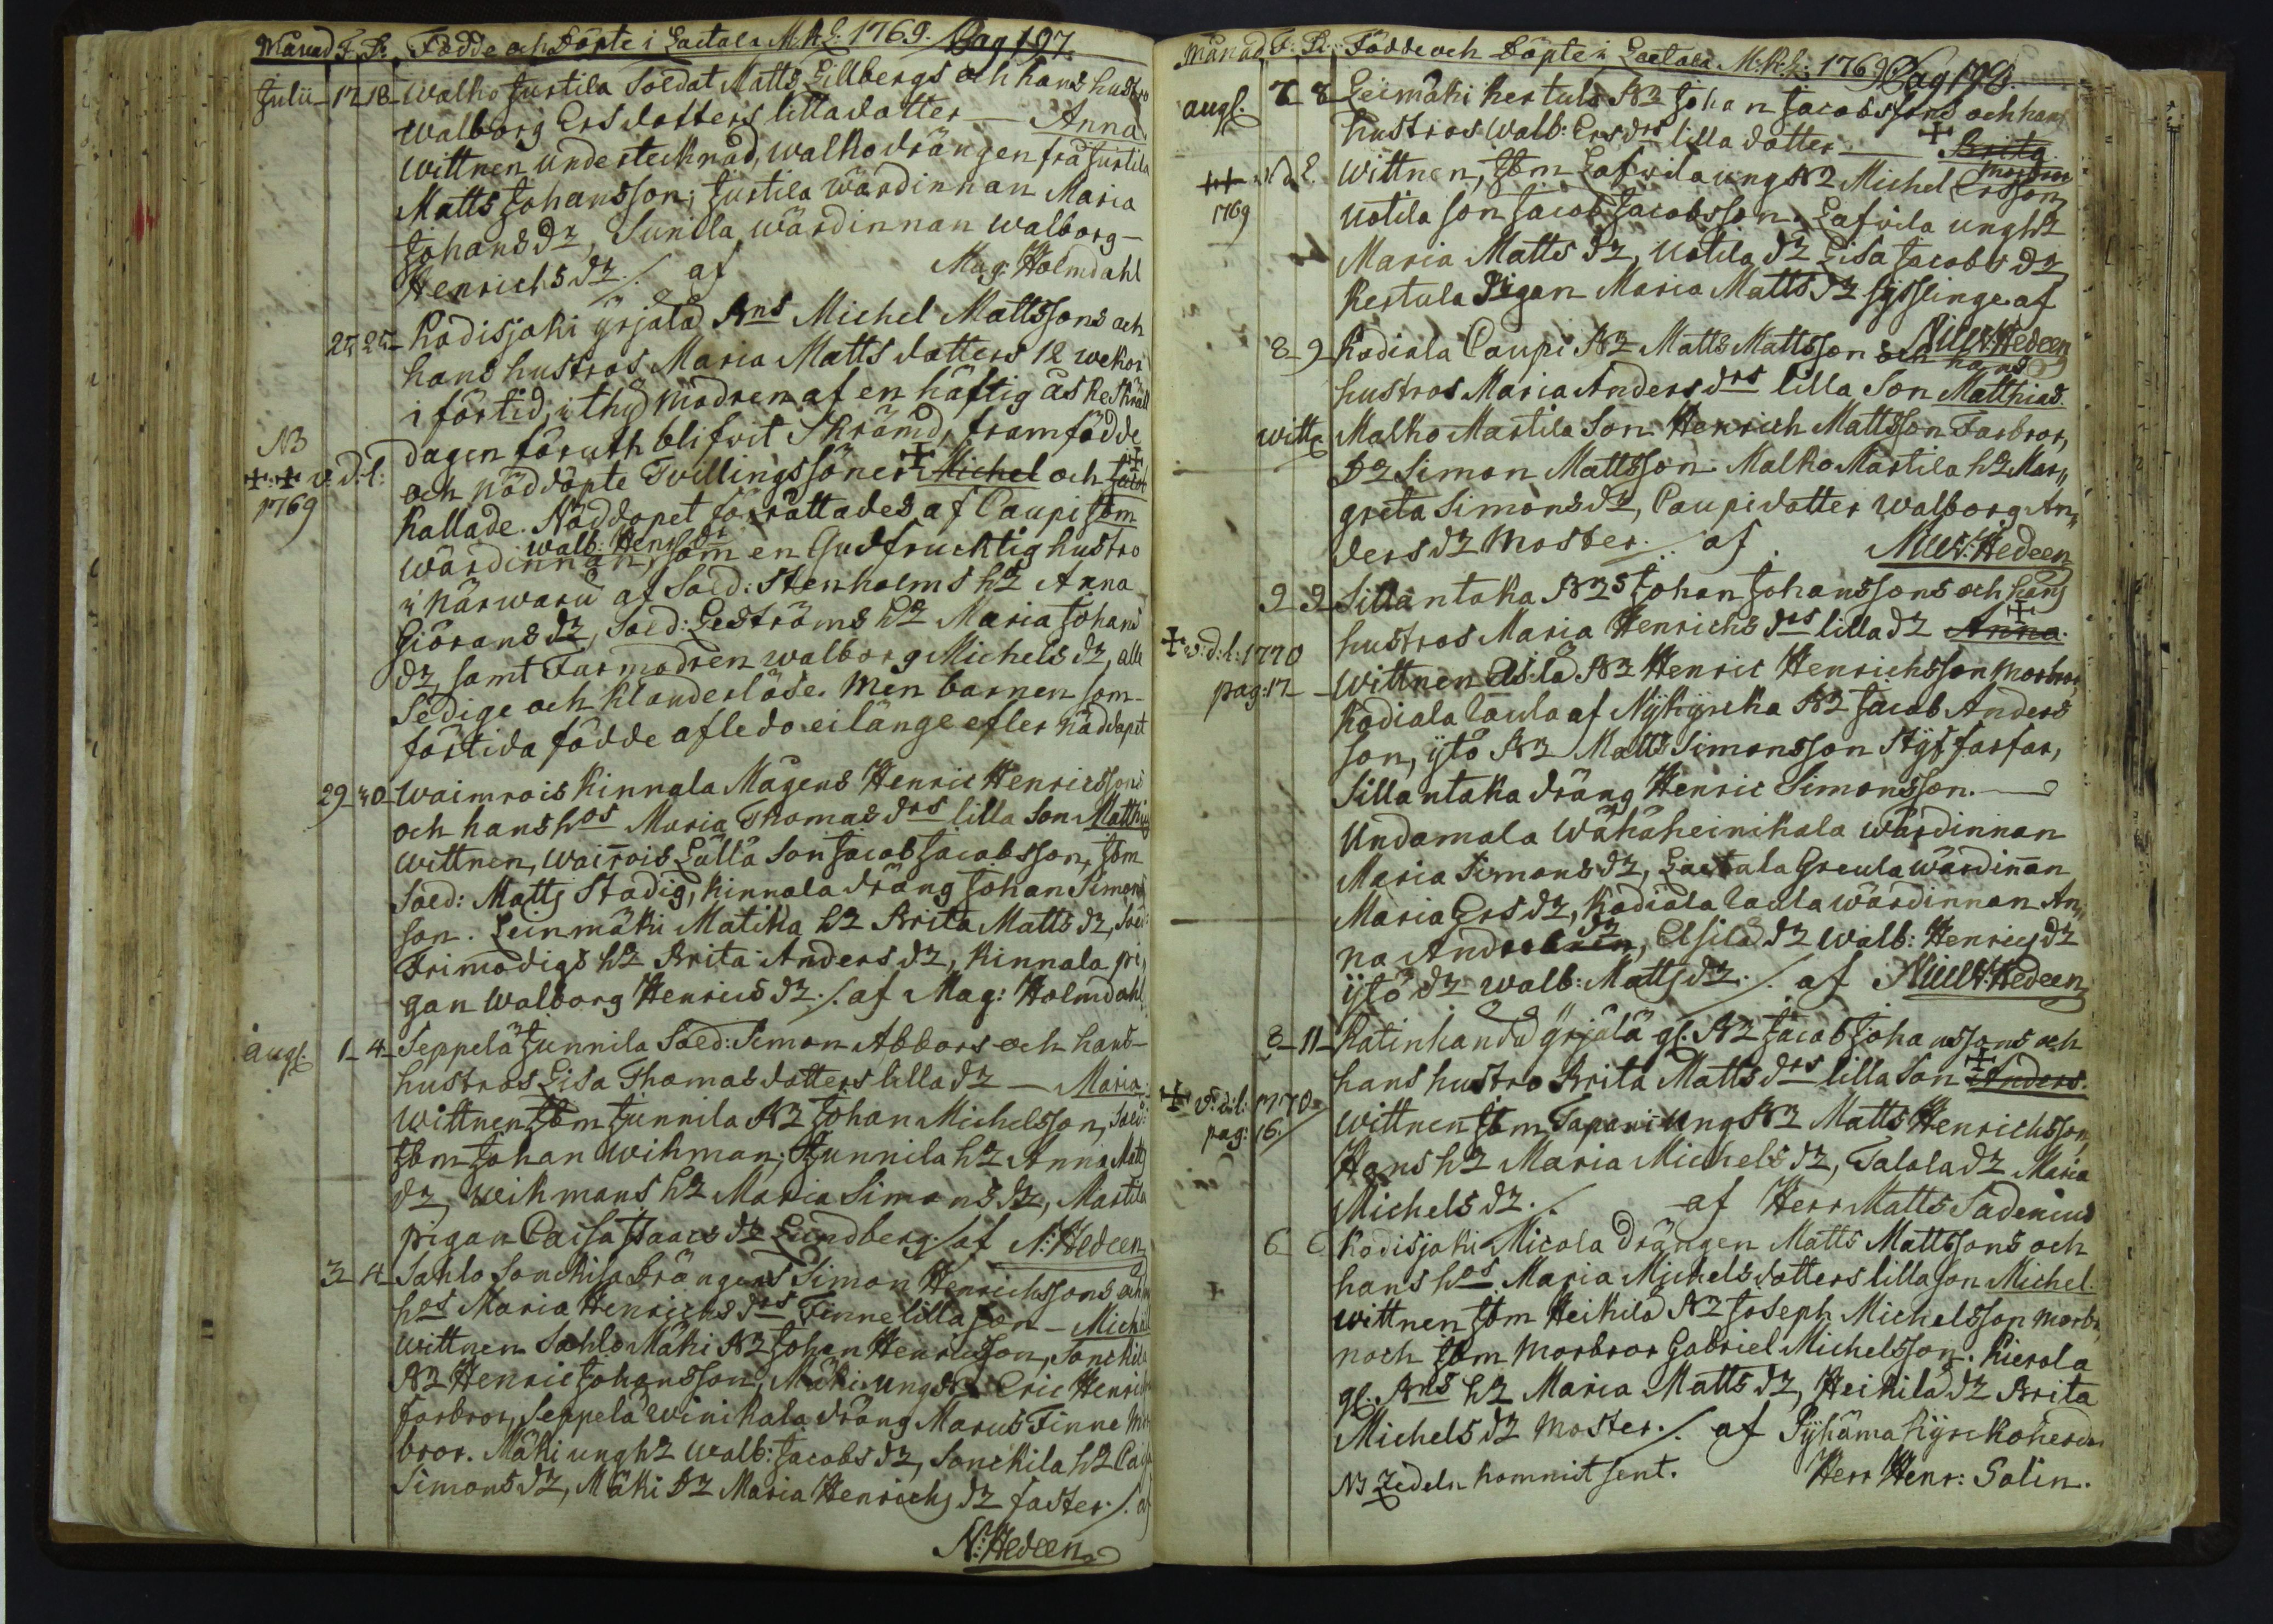 Månad F. D. Födde och Döpte i Laitala M.K.L. 1769. Pag 197.
Julii 17 18 Walko Justila Soldat Matts Lillbergs och hans hustro
Walborg Ersdotters lilla dotter — Anna.
Wittnen undertecknad, Walko drängen frå Justila
Matts Johansson; Justila wärdinnan Maria
Johansdr, Sunila wärdinnan Walborg
Henrichsdr ./. af Mag: Holmdahl
25 25 Kodisjoki Yrjälä Bns Michel Mattssons och
hans hustros Maria Matts dotters 12 wekor
i förtid, i thy modren af en häftig åskeskräll
dagen föruth blifvit Skrämd, framfödde
NB
++ v.d.l: och nöddöpte Tvillingssöner Michel och
1769 kallade. Nöddopet förrättades af Caupi Jbm
walb: Henrsdr
wärdinnan, som en Gudfrucktig hustro
i närwaru af Sold: Stenholms h2 Anna
Giöransdr, Sold: Leströms h2 Maria Johans
dr, samt Farmodren walborg Michelsdr, alla
Sedige och klanderlöse. Men barnen som
förtida födde afledo ei länge efter nöddopet
29 30 Waimrois Kinnala Mågens Henric Henricssons
och hans hos Maria Thomas drs lilla Son Matthias
wittnen, wairois Lällä Son Jacob Jacobsson, Jbm
Sold: Matts Stadig, Kinnala dräng Johan Simons
son. Leinmäki Matika h2 Brita Mattsdr, Sold:
Frimodigs h2 Brita Andersdr, Kinnala pi
gan Walborg Henricsdr ./. af Mag: Holmdahl
augl. 1 4 Seppelä Junnila Sold: Simon Abbors och hans
hustros Lisa Thomas dotters lilla dr — Maria.
Wittnen Jbm Junnila B2 Johan Michelsson, Sold:
Jbm Johan Wikman; Junnila h2 Anna Matts
dr, Weikmans h2 Maria Simonsdr, Martila
pigan Caisa Isaacsdr Lundberg ./. af N: Hedeen
3 4 Sahlo Sonckila Drängens Simon Henrichssons och
hos Maria Henrichs drs Finne lilla son — Michel
Wittnen Sahlo Mäki B2 Johan Henricsson, Sonckila
B2 Henric Johansson, Mäki ung B2 Eric Henrics
farbror, Seppelä Winikala dräng Marcus Finne mor
bror. Mäki ung h2 Walb: Jacobsdr, Sonckila h2 Caisa
Simonsdr, Mäki Dr Maria Henrichsdr faster ./. af
N: Hedeen
Månad F: D: Födde och Döpte i Laitala M:K:L: 1769 Pag 198.
augl. 7 8 Leimäki Kertula B2 Johan Jacobssons och hans
hustros Walb: Ersdrs lilla dotter — Brita
++ v.d.l. Wittnen, Jbm Lafvila ung B2 Michel Ersson morbror
1769 Uotila son Jacob Jacobsson. Lafvila ung h2
Maria Mattsdr, Uotila dr Lisa Jacobsdr
Kertula Pigan Maria Mattsdr syslinge. af
8 9 Kodiala Caupi B2 Matts Mattsson och hans Nils: Hedeen
hustros Maria Anders drs lilla Son Matthias.
witt: Malko Martila Son Henrich Mattsson Farbror,
Do Simon Mattsson. Malko Martila h2 Mar
greta Simonsdr, Caupi dotter Walborg An
dersdr Moster ./. af Nils: Hedeen
9 9 Sillantaka B2s Johan Johanssons och hans
hustros Maria Henrichs drs lilla dr Anna.
+ v.d.l: 1770
pag: 17 Wittnen B2 Henric Henrichsson morbror,
Kodiala Caula af Nykyrcka B2 Jacob Anders
son, ytö B2 Matts Simonsson Styffarfar,
Sillantaka dräng Henric Simonsson.
Undamala Wähäheinikala wärdinnan
Maria Simonsdr, Laitala Greula wärdinnan
Maria Ersdr, Kodiala Caula wärdinnan An
na Andersdr, Elsilä dr Walb: Henricsdr
ytö dr walb: Mattsdr ./. af Nils: Hedeen
8 11 Katinhändä yrjälä gl. B2 Jacob Johanssons och
hans hustro Brita Matts drs lilla Son Anders.
+ v.d.l: 1770
pag: 16. Wittnen Jbm Tapani ung B2 Matts Henrichsson,
Hans h2 Maria Michelsdr, Talola dr Maria
Michelsdr ./. af Herr Matts Sadenius
6 Kodisjoki Micola Drängen Matts Mattssons och
hans hos Maria Michels dotters lilla son Michel.
Wittnen Jbm Heikilä B2 Joseph Michelsson morbr,
noch Jbm Morbror Gabriel Michelsson. Kierola
gl. Bns h2 Maria Mattsdr, Heikilä dr Brita
Michelsdr Moster ./. af Pyhäma Kyrckoherden
NB Zedeln kommit sent. Herr Henr: Salin.